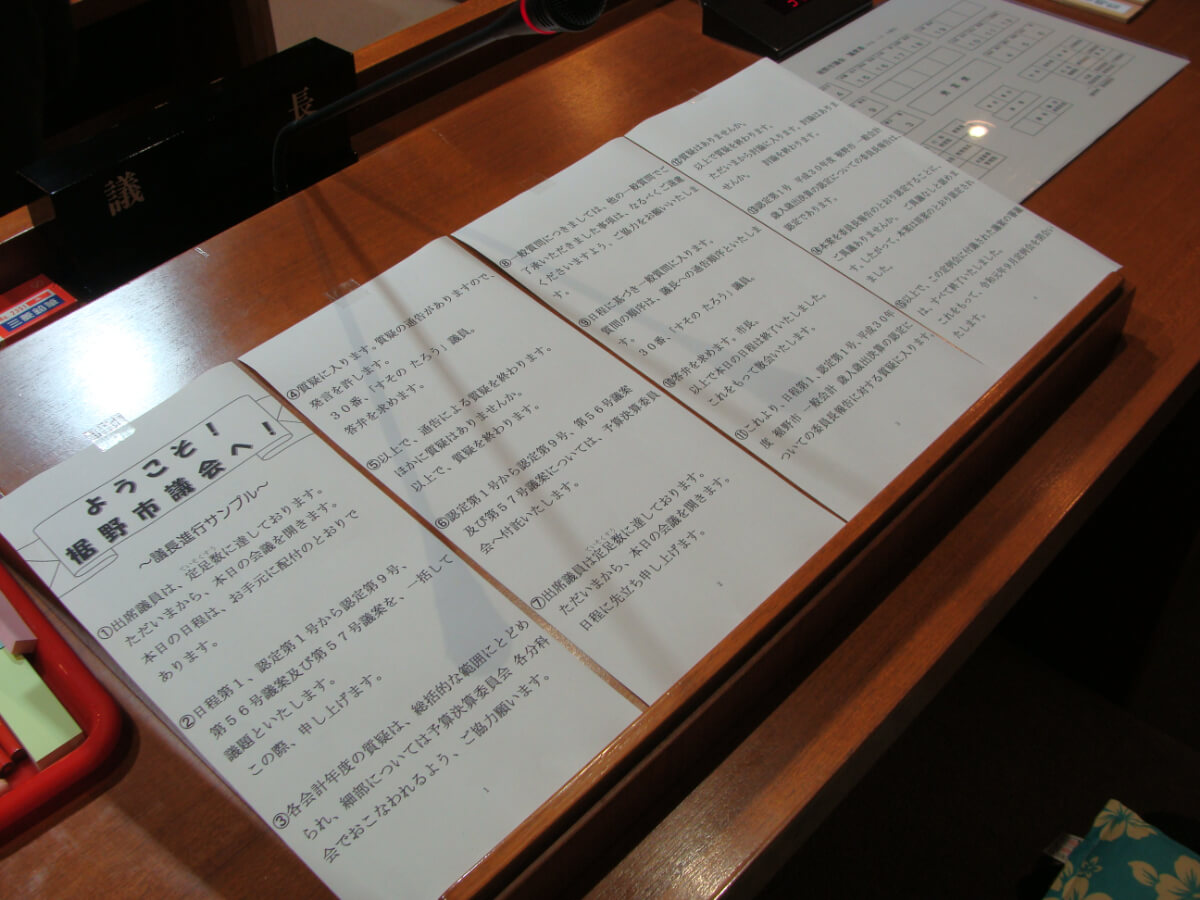 議長
三菱鉛筆
ようこそ!
裾野市議会へ!
~議長進行サンプル~
①出席議員は、定足数に達しております。
ただいまから、本日の会議を開きます。
本日の日程は、お手元に配付のとおりで
あります。
②日程第1、認定第1号から認定第9号、
第56号議案及び第57号議案を、一括して
議題といたします。
この際、申し上げます。
③各会計年度の質疑は、総括的な範囲にとどめ
られ、細部については予算決算委員会 各分科
会でおこなわれるよう、ご協力願います。
1
④質疑に入ります。質疑の通告がありますので、
発言を許します。
30番、「すその たろう」議員。
答弁を求めます。
⑤以上で、通告による質疑を終わります。
ほかに質疑はありませんか。
以上で、質疑を終わります。
⑥認定第1号から認定第9号、第56号議案
及び第57号議案については、予算決算委員
会へ付託いたします。
⑦出席議員は定足数に達しております。
ただいまから、本日の会議を開きます。
日程に先立ち申し上げます。
2
⑧一般質問につきましては、他の一般質問でご
了承いただきました事項は、なるべくご遠慮
くださいますよう、ご協力をお願いいたしま
す。
⑨日程に基づき一般質問に入ります。
質問の順序は、議長への通告順序といたしま
す。
30番、「すその たろう」議員。
⑩答弁を求めます。市長。
以上で本日の日程は終了いたしました。
これをもって散会いたします。
⑪これより、日程第1、認定第1号、平成30年
度 裾野市 一般会計 歳入歳出決算の認定に
ついての委員長報告に対する質疑に入ります。
3
⑫質疑はありませんか。
以上で質疑を終わります。
ただいまから討論に入ります。討論はありま
せんか。 討論を終わります。
⑬認定第1号 平成30年度 裾野市 一般会計
歳入歳出決算の認定についての委員長報告は、
認定であります。
⑭本案を委員長報告のとおり認定することに、
ご異議ありませんか。 ご異議なしと認めま
す。したがって、本案は原案のとおり認定され
ました。
⑮以上で、この定例会に付議された議案の審議
は、すべて終了いたしました。
これをもって、令和元年9月定例会を閉会い
たします。